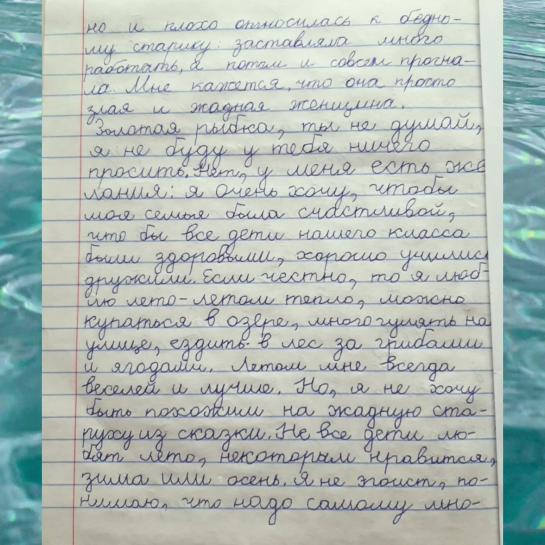 но и плохо относилась к бедно-
му старику: заставляла много
работать, а потом и совсем прогна-
ла. Мне кажется, что она просто
злая и жадная женщина.
Золотая рыбка, ты не думай,
я не буду у тебя ничего
просить. Нет, у меня есть же
лания: я очень хочу, чтобы
моя семья была счастливой,
что бы все дети нашего класса
были здоровыми, хорошо училис
дружили. Если честно, то я люб
лю лето-летом тепло, можно
купаться в озере, много гулять на
улице, ездить в лес за грибами
и ягодами. Летом мне всегда
веселей и лучше. Но, я не хочу
быть похожим на жадную ста-
руху из сказки. Не все дети лю-
бят лето, некоторым нравится,
зима или осень. Я не эгоист, по-
нимаю, что надо самому мно-